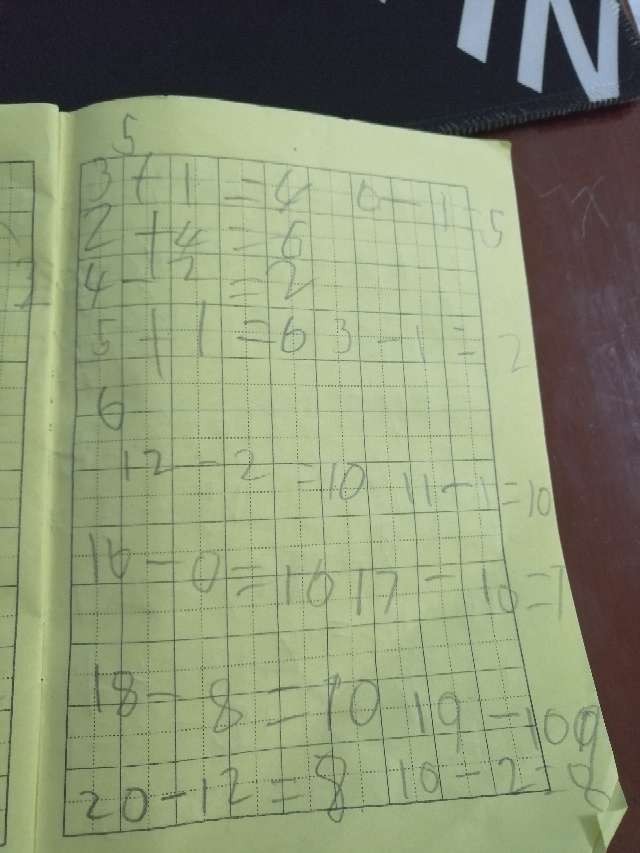 5
3+1=4 6-1=5
2+4=6
4-2=2
5+1=6 3-1=2
6
12-2=10 11-1=10
16-0=16 17-16=1
18-8=10 19-109
20-12=8 10-2=8